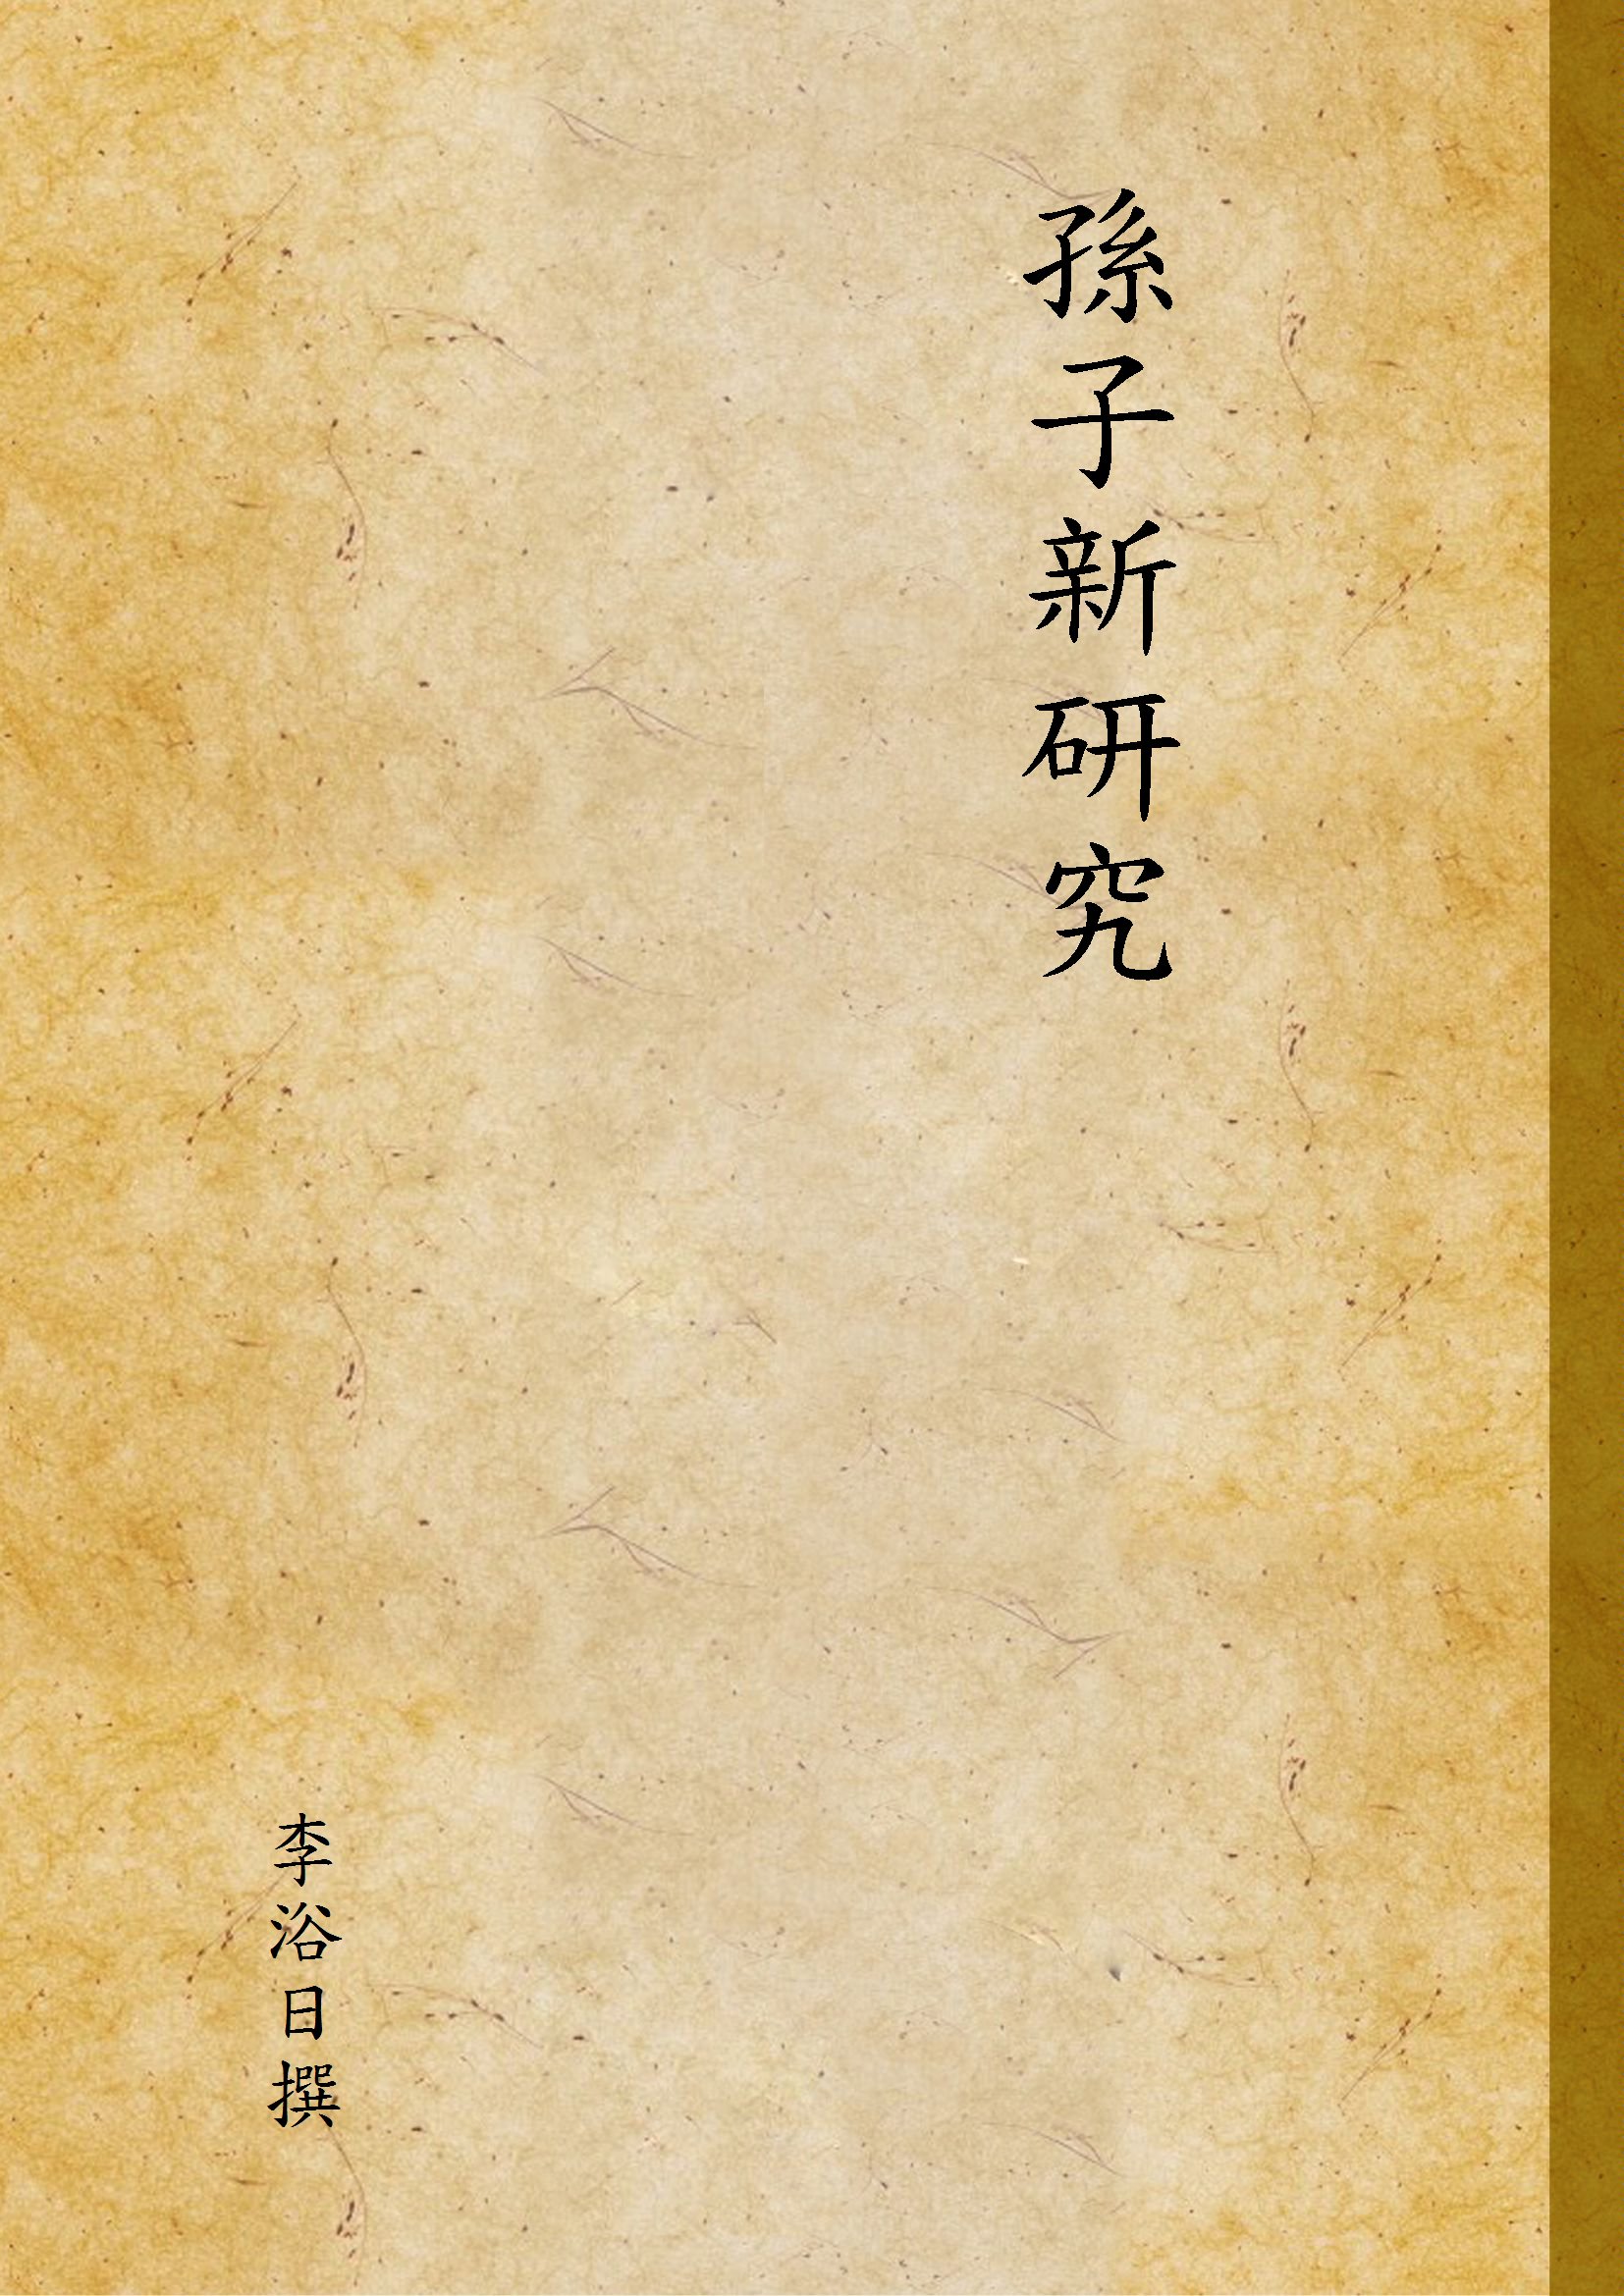 孫子新研究
李浴日撰